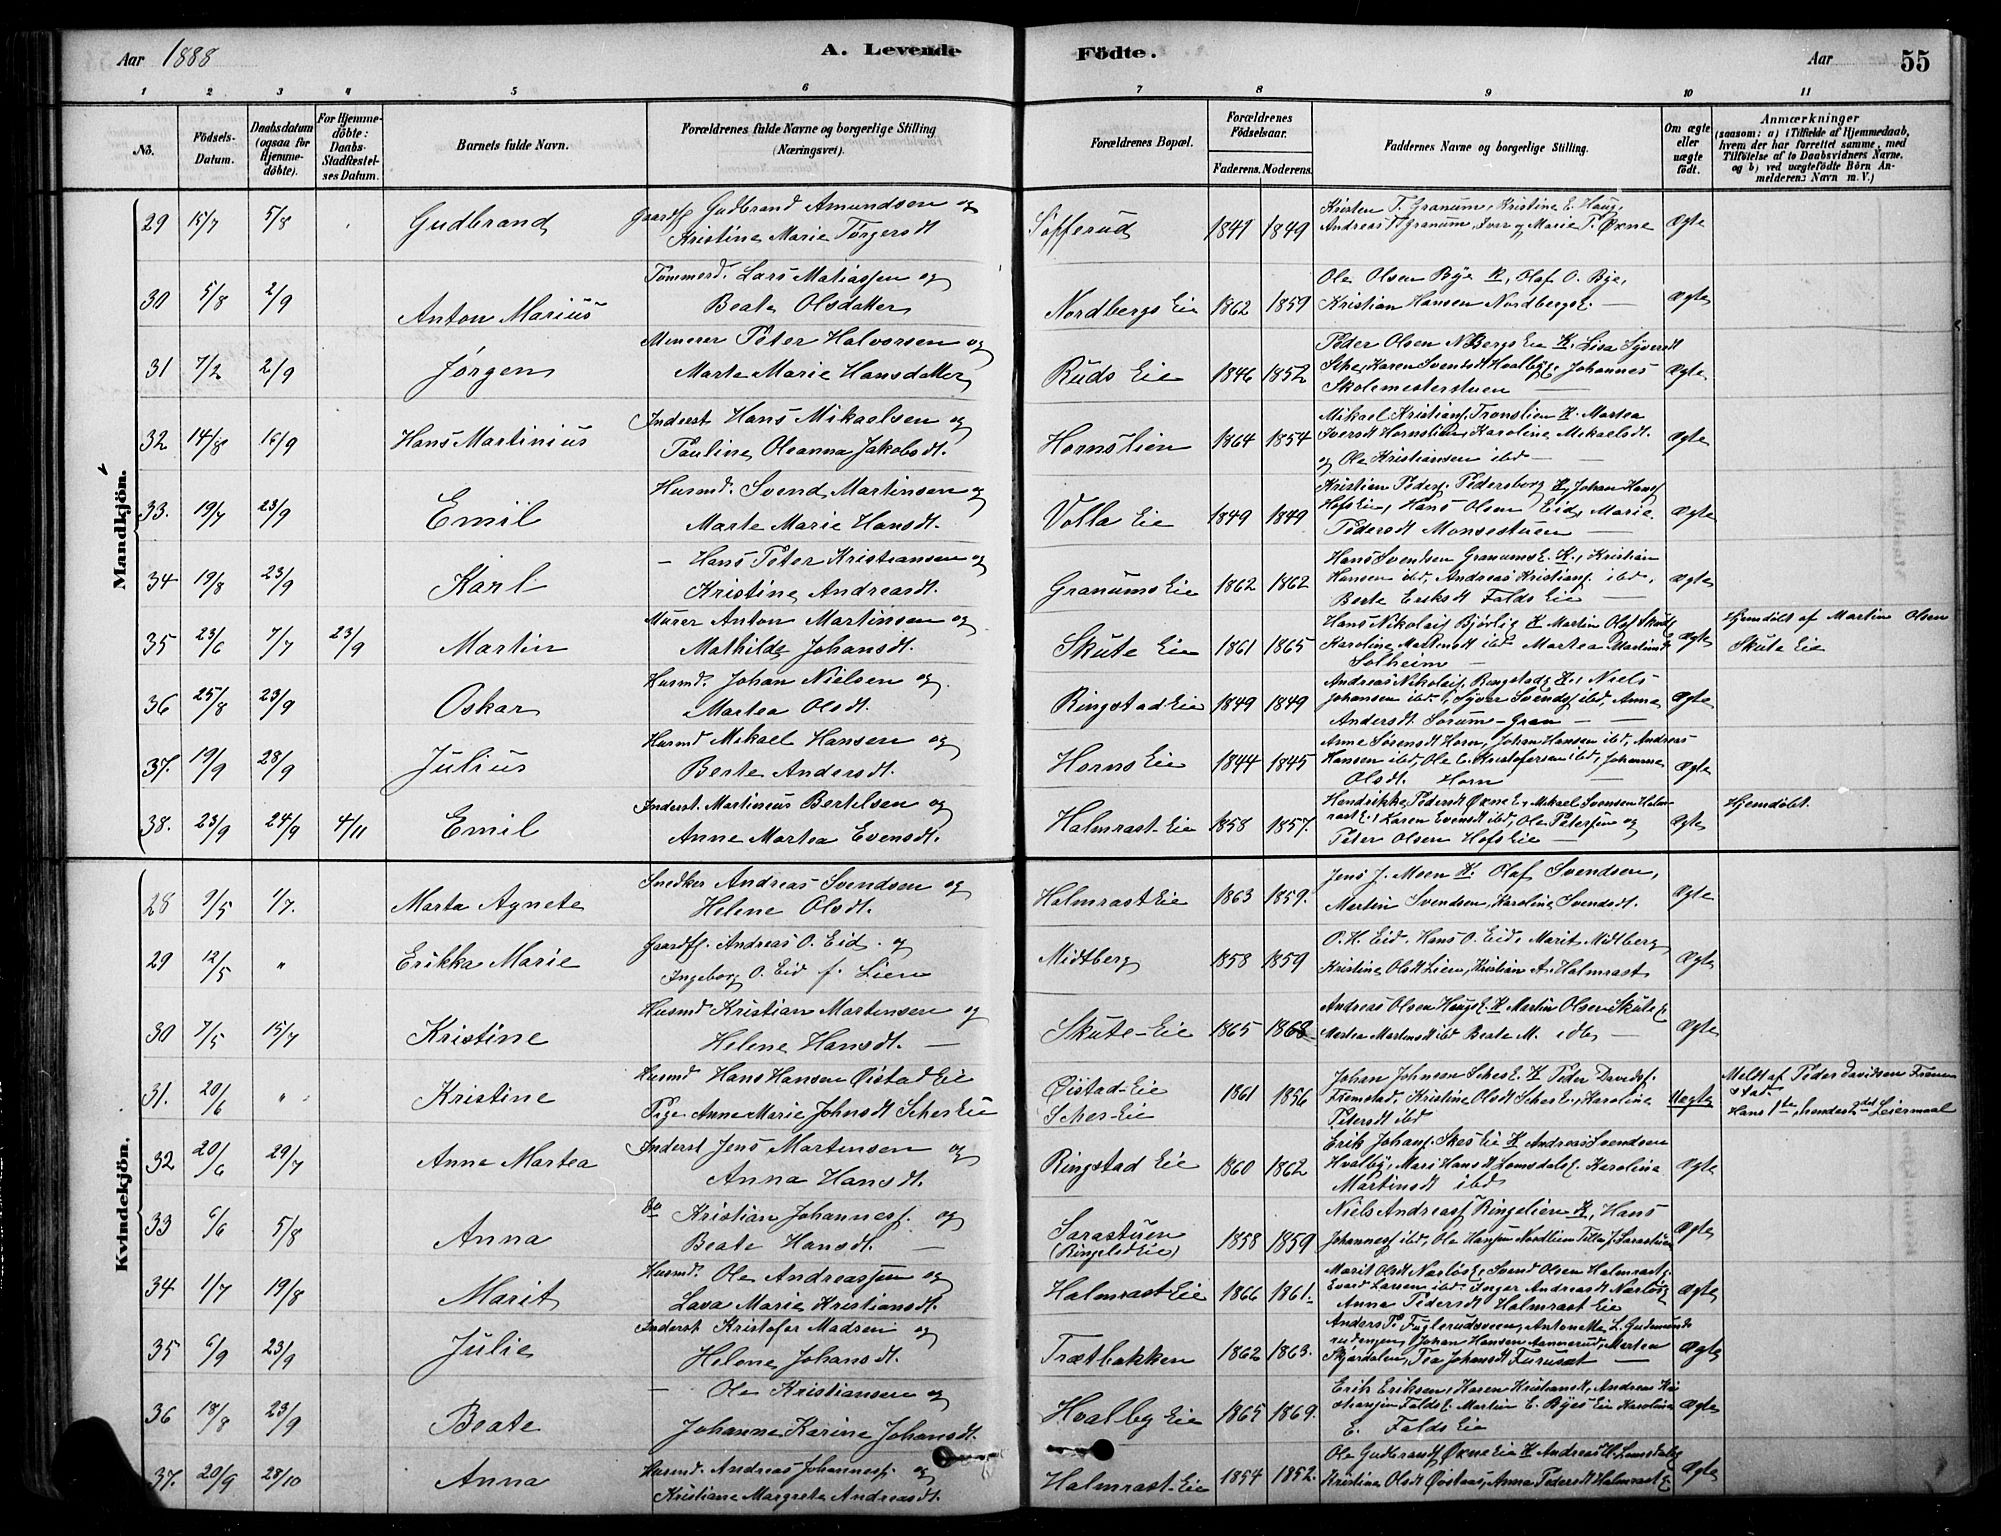 Aar 1888 A. Levende Födte. Aar 55
1 2 3 4 5 6 7 8 9 10 11
No. Födsels-Datum. Daabsdatum (ogsaa for Hjemmedöbte). For Hjemmedöbte: Daabs-Stadfæstelses Datum. Barnets fulde Navn. Forældrenes fulde Navne og borgerlige Stilling (Næringsvei). Forældrenes Bopæl. Forældrenes Födselsaar. Faderens. Moderens. Faddernes Navne og borgerlige Stilling. Om ægte eller uægte födt. Anmærkninger (saasom: a) i Tilfælde af Hjemmedaab, hvem der har forrettet samme, med Tilföielse af to Daabsvidners Navne, og b) ved uægtefödte Börn Anmelderens Navn m. V.)
Mandkjön.
29 15/7 5/8 Gudbrand Gaardf. Gudbrand Amundsen og Kristine Marie Torgersdt Söfferud 1841 1849 Kristen T. Granum, Kristine E. Haug, Andreas T Granum, Iver og Marie P. Øxne Ægte
30 5/8 2/9 Anton Marius Tømmerd. Lars Matiassen og Beate Olsdatter Nordbergs Eie 1862 1859 Ole Olsen Bye K, Olaf O. Bye, Kristian Hansen NordbergsE. Ægte
31 7/2 2/9 Jørgen Minerer Peter Halvorsen og Marte Marie Hansdatter Ruds Eie 1846 1852 Peder Olsen NBergs Eie K. Lisa Syversdt Karen Svendsdt HvalbyE, Johannes Skolemesterstuen Ægte
32 14/8 16/9 Hans Martinius Inderst Hans Mikaelsen og Pauline Oleanna Jakobsdt. Hornslien 1864 1854 Mikael Kristians. Tronslien K. Martea Iversdt Hornslien, Karoline Mikaelsdt. og Ole Kristiansen ibd Ægte
33. 19/7 23/9 Emil Husmd. Svend Martinsen og Marte Marie Hansdt. Volla Eie 1849 1849 Kristian Peders. Pedersborg K, Johan Hans. Hofs Eie, Hans Olsen Eid, Marie Pedersdt Monsestuen Ægte
34 19/8 23/9 Karl - Hans Peter Kristiansen og Kristine Andreasdt. Granums Eie 1862 1862 Hans Svendsen GranumsE. K., Kristian Hansen ibd, Andreas Kristians. ibd, Berte Eriksdt Falds Eie Ægte
35 23/6 7/7 23/9 Martin Murer Anton Martinsen og Mathilde Johansdt. Skute Eie 1861 1865 Hans Nikolais Bjørlig K Martin Olsf Skute, Karoline Martensdt ibd Martea Martinsdt Solheim Ægte Hjemdöbt af Martin Olsen Skute Eie
36 25/8 23/9 Oskar Husmd. Johan Nielsen og Martea Olsdt. Ringstad Eie 1849 1849 Andreas Nikolais. Ringstad K., Niels Johansen ibd., Syver Svends. ibd, Anne Andersdt. Sorum-Gran Ægte
37. 19/9 28/9 Julius Husmd Mikael Hansen og Berte Andersdt. Horns Eie 1844 1845 Anne Sørensdt Horn, Johan Hansen ibd, Andreas Hansen ibd, Ole E. Kristofersen ibd, Johanne Olsdt. Horn Ægte
38. 23/9 24/9 4/11 Emil Inderst. Martinius Bertelsen og Anne Martea Evensdt. Halmrast-Eie 1858 1857. Hendrikke Pedersdt ØxneE, Mikael Svensen Halmrast E., Karen Evensdt ibd, Ole Petersen og Peter Olsen Hofs Eie Ægte Hjemdöbt.
Kvindekjön.
28 9/5 1/7. Marta Agnete Snedker Andreas Svendsen og Helene Olsdt. Halmrast Eie 1863 1859. Jens J. Moen K. Olaf Svendsen, Martin Svendsen, Karoline Svendsdt. Ægte
29 12/5 " Erikka Marie Gaardf. Andreas O. Eid. og Ingeborg O. Eid f. Lien Midtberg 1858 1859 O. H. Eid, Hans O. Eid, Marit Midtberg Kristine Olsdt Lien, Kristian A. Halmrast Ægte
30 7/5 15/7 Kristine Husmd Kristian Martensen og Helene Hansdt. Skute-Eie 1865 1868 Andreas Olsen HaugsE. K Martin Olsen Skute E Martea Martensdt ibd Beate M. ibd Ægte
31. 20/6 " Kristine Husmd Hans Hansen Øistad Eie Pige Anne Marie Johnsdt Skes Eie Øistad-Eie Skes-Eie 1861 1856 Johan Johnsen SkesE. K Peder Davids. Fremstad, Kristine Olsdt SkesE, Karoline Petersdt ibd Uægte Meldt af Peder Davidsen Fremstad. Hans 1ste, hendes 2det Leiermaal
32 20/6 29/7 Anne Martea Inderst Jens Martensen og Anna Hansdt. Ringstad Eie 1860 1862 Erik Johans. Skes Eie K Andreas Svendsen Hvalby, Mari Hansdt LomsdalsE. Karoline Martinsdt ibd Ægte
33 6/6 5/8 Anna do Kristian Johanness. og Beate Hansdt. Sarastuen (Ringelid Eie) 1858 1859 Niels Andreass Ringelien K, Hans Johanness ibd, Ole Hansen Nordlien Sarastuen Ægte
34 1/7 19/8 Marit Husmd. Ole Andreassen og Lava Marie Kristiansdt. Halmrast Eie 1866 1861. Marit Olsdt NarløsE, Svend Olsen Halmrast, Evard Larsen ibd Inger Andreasdt Narløs, Anna Pedersdt Halmrast Eie Ægte
35 6/9 23/9 Julie Inderst Kristofer Madsen og Helene Johansdt. Trætbakken 1862 1863. Anders P. Fuglerudseien, Antonette L. Johan Hansen Annerud, Morten Skjerdalen, Pea Johansdt Furuset Ægte
36 18/8 23/9 Beate - Ole Kristiansen og Johanne Karine Johansdt. Hvalby Eie 1865 1869. Erik Eriksen, Karen Kristiansdt, Andreas Kristiansen FaldsE. Martin E. Byes Eie Karoline E. Falds Eie Ægte
37. 20/9 28/10 Anna Husmd. Andreas Johanness. og Kristiane Margrete Andreasdt. Halmrast-Eie 1854 1852. Ole Gudbrandf Øxne Eie K Andreas H. Lomsdal, Kristine Olsdt Øvstaas, Anna Pedersdt Halmrast E Ægte